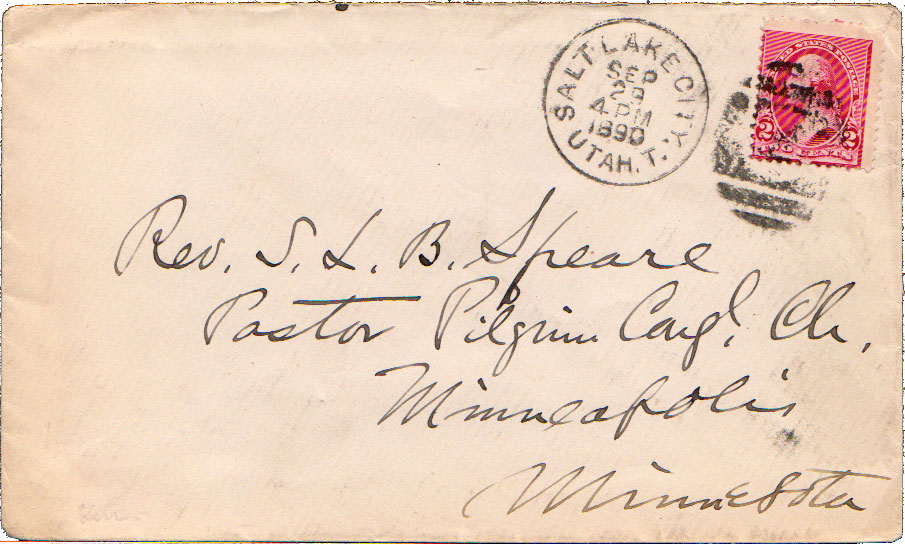 SALT LAKE CITY, UTAH. T.
SEP
29
4 PM
1890
UNITED STATES POSTAGE
2 2
Rev. S. L. B. Speare
Pastor Pilgrim Congl. Ch.
Minneapolis
Minnesota